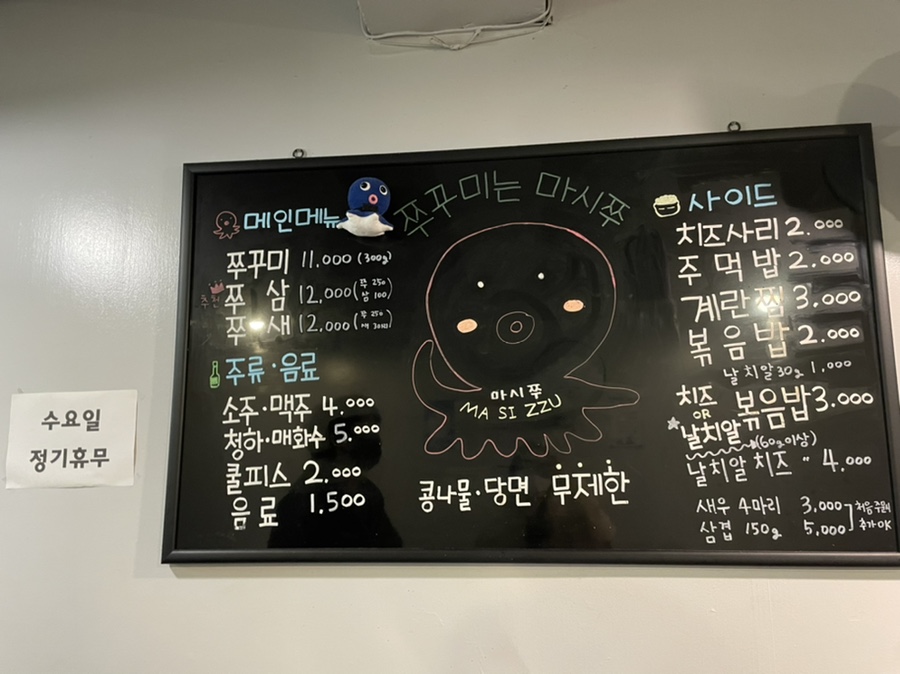 쭈꾸미는 마시쭈
메인메뉴
쭈꾸미 11.000 (300g)
추천
쭈 삼 12,000 (쭈 250 삼 100)
쭈 새 12,000 (쭈 250
주류·음료
소주·맥주 4.000
청하·매화수 5.000
쿨피스 2.000
음료 1.500
마시쭈
MA SI ZZU
콩나물·당면 무제한
사이드
치즈사리 2.000
주먹밥 2.000
계란찜 3,000
볶음밥 2.000
날치알 30g 1,000
치즈 OR 날치알 볶음밥 3.000
(60g이상)
날치알 치즈 " 4,000
새우 4마리 3,000
삼겹 150g 5,000
추가OK
수요일
정기휴무